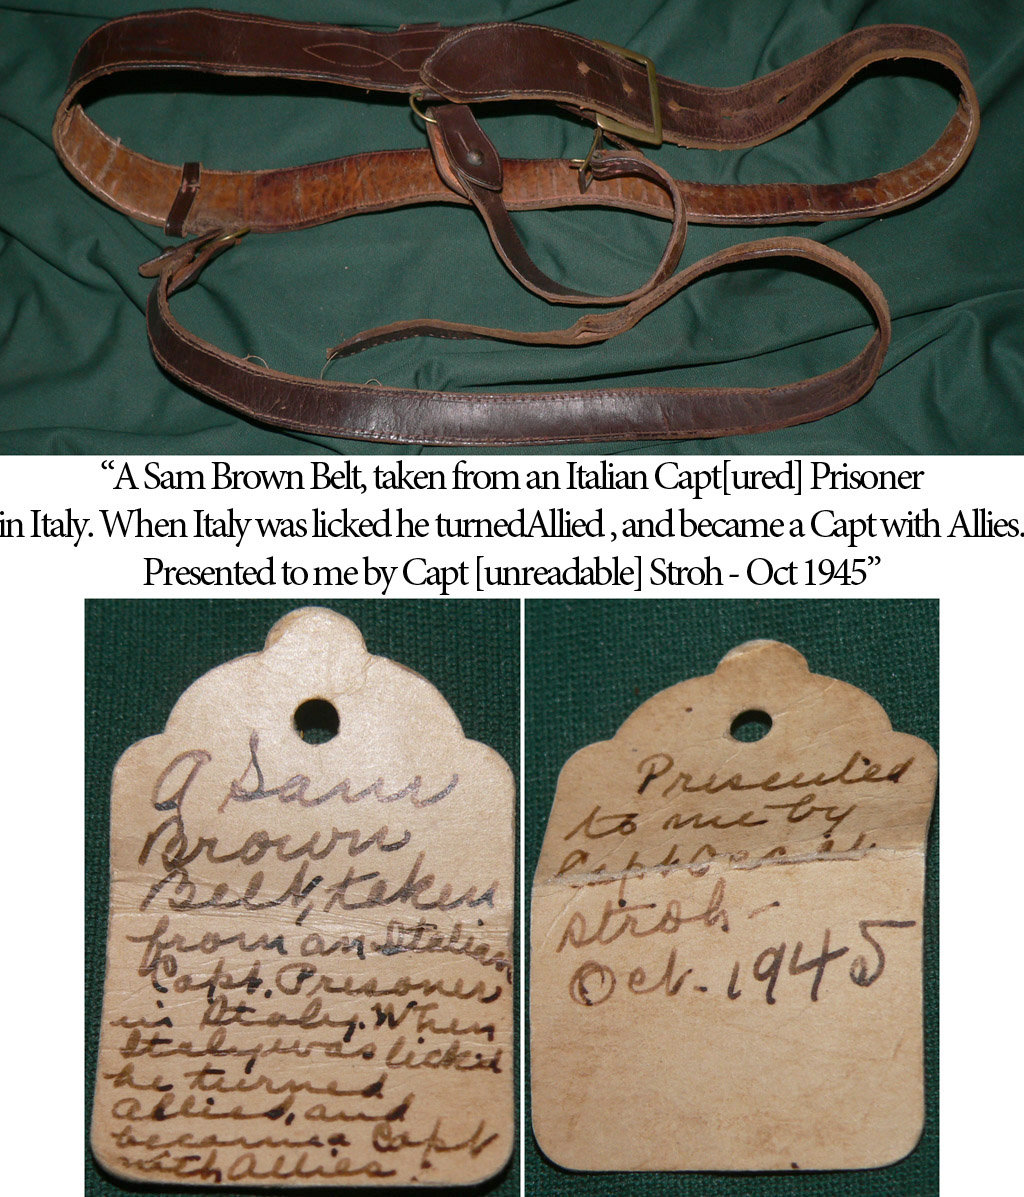 “A Sam Brown Belt, taken from an Italian Capt[ured] Prisoner
in Italy. When Italy was licked he turnedAllied , and became a Capt with Allies.
Presented to me by Capt [unreadable] Stroh - Oct 1945”
A Sam
Brown
Belt, taken
from an Italian
Capt. Prisoner
in Italy. When
Italy was licked
he turned
Allied, and
became a Capt
with Allies.
Presented
to me by
Capt
Stroh -
Oct. 1945